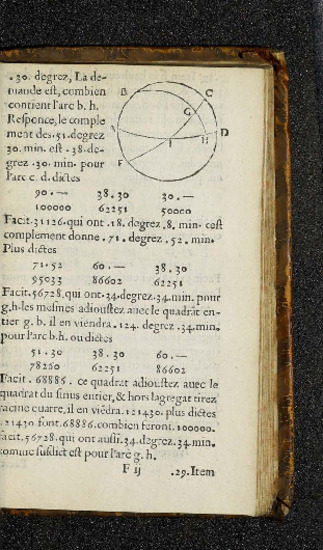 .30. degrez, La de-
mande est, combien
contient l'arc b. h.
Responce, le comple
ment des.51.degrez
30. min. est .38.de-
grez .30. min. pour
l'arc c. d. dictes
90.— 38.30 30.—
100000 62251 50000
Facit.31126.qui ont .18. degrez .8. min. cest
complement donne .71. degrez .52. min.
Plus dictes
71.52 60.— 38.30
95033 86602 62251
Facit.56728.qui ont.34.degrez.34.min. pour
g.h.les mesmes adioustez auec le quadrāt en-
tier g. b. il en viēdra .124. degrez .34.min.
pour l'arc b.h. ou dictes
51.30 38.30 60.—
78260 62251 86602
Facit . 68885 . ce quadrat adioustez auec le
quadrat du sinus entier, & hors lagregat tirez
racine cuarre, il en viēdra.121430. plus dictes
.21430 font.68886.combien feront.100000.
facit.56728.qui ont aussi.34.degrez.34.min.
comme susdict est pour l'arc g. h.
F ij .29.Item
B
C
G
A
I
H
D
F